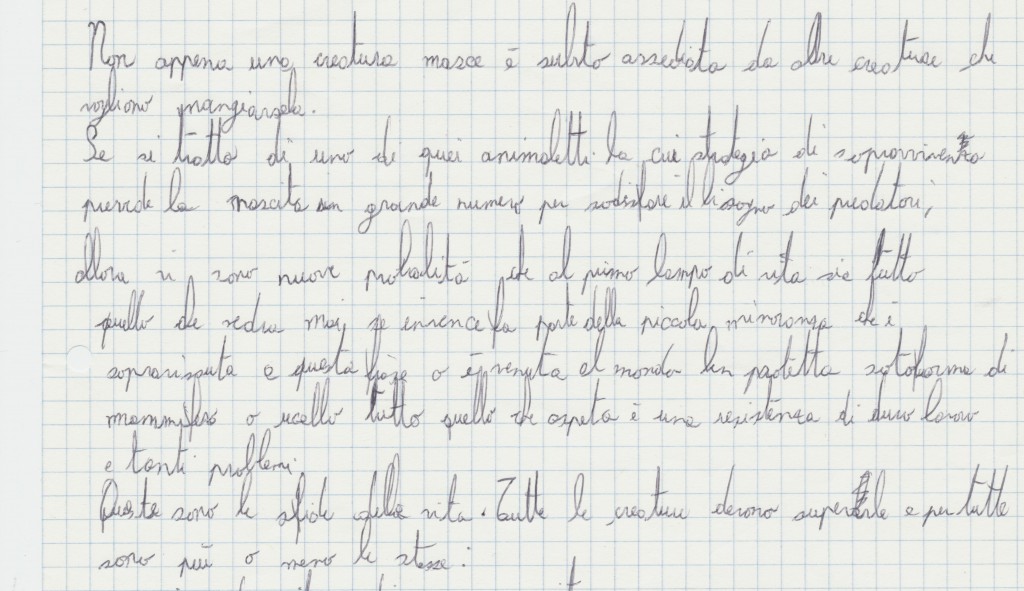 Non appena una creatura nasce è subito assediata da altre creature che
vogliono mangiarsela.
Se si tratta di uno di quei animaletti la cui strategia di sopravvivenza
prevede la nascita in grande numero per sodisfare il bisogno dei predatori,
allora vi sono nuove probalità che al primo lampo di vita sia tutto
quello che vedrà mai, se invence fa parte della piccola minoranza che è
sopravissuta a questa fase o è venuta al mondo ben protetta sotoforma di
mammifero o ucello tutto quello che aspeta è una resistenza di duro lavoro
e tanti problemi.
Queste sono le sfide della vita. Tutte le creature devono superarle e per tutte
sono più o meno le stesse: